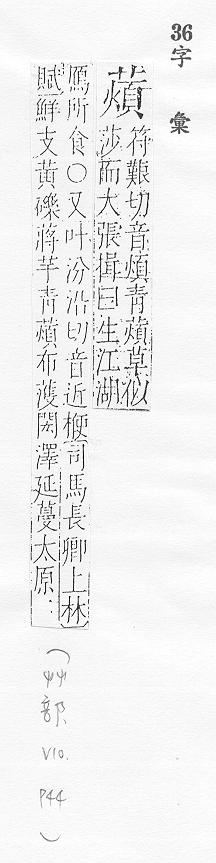 36字 彙
薠 符艱切音煩青薠草似
莎而大張揖曰生江湖
鴈所食○又叶汾沿切音近楩司馬長卿上林
賦鮮支黃礫蔣芧青薠布濩閎澤延蔓太原..
(艸部 V10. P44)